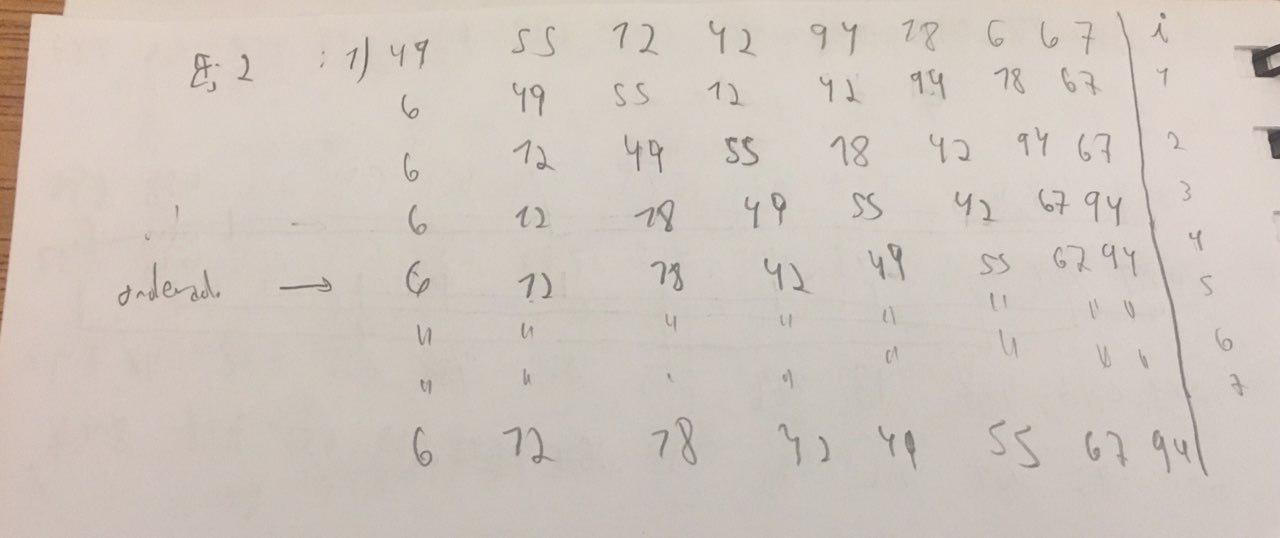 Ej 2 : 1) 49 55 12 42 94 18 6 67 i
6 49 55 12 42 94 18 67 1
6 12 49 55 18 42 94 67 2
6 12 18 49 55 42 67 94 3
ordenado → 6 12 18 42 49 55 67 94 4
" " " " " " " " 5
" " " " " " " 6
7
6 12 18 42 49 55 67 94